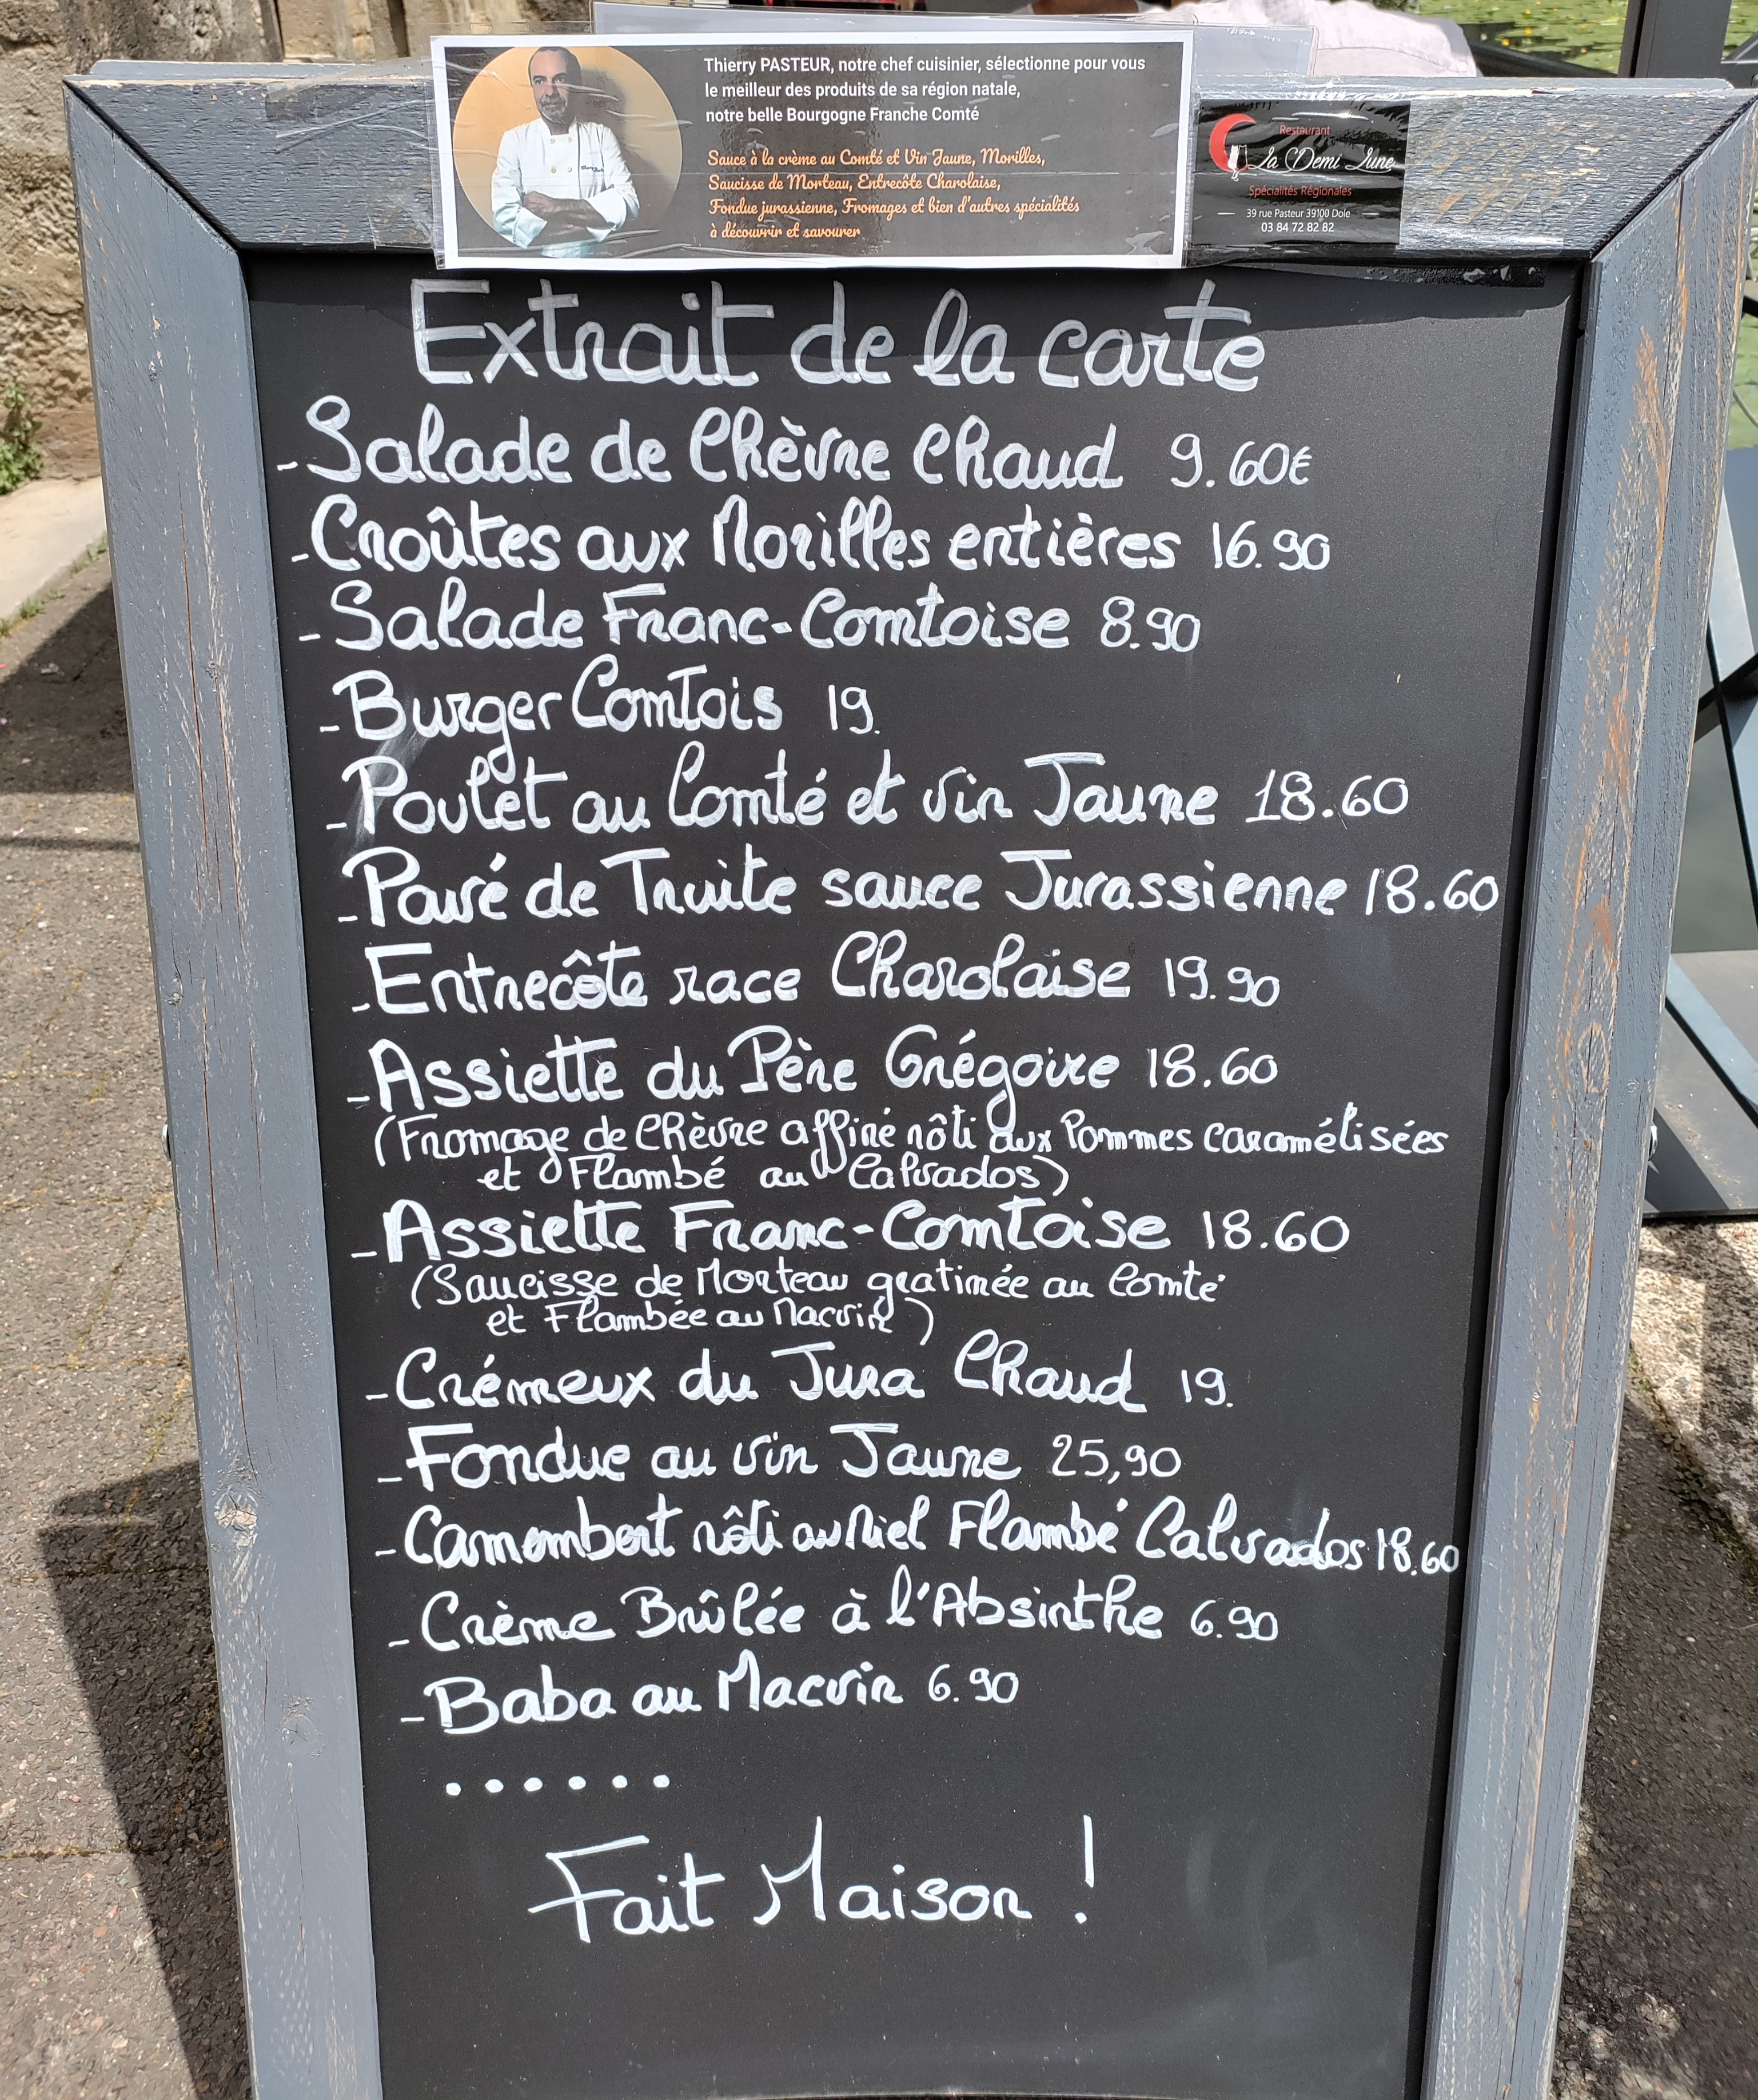 Thierry PASTEUR, notre chef cuisinier, sélectionne pour vous
le meilleur des produits de sa région natale,
notre belle Bourgogne Franche Comté
Sauce à la crème au Comté et Vin Jaune, Morilles,
Saucisse de Morteau, Entrecôte Charolaise,
Fondue jurassienne, Fromages et bien d'autres spécialités
à découvrir et savourer
Restaurant
La Demi Lune
Spécialités Régionales
39 rue Pasteur 39100 Dole
03 84 72 82 82
Extrait de la carte
- Salade de Chèvre Chaud 9.60€
- Croûtes aux Morilles entières 16.90
- Salade Franc-Comtoise 8.90
- Burger Comtois 19.
- Poulet au Comté et vin Jaune 18.60
- Pavé de Truite sauce Jurassienne 18.60
- Entrecôte race Charolaise 19.90
- Assiette du Père Grégoire 18.60
(Fromage de Chèvre affiné rôti aux Pommes caramélisées
et Flambé au Calvados)
- Assiette Franc-Comtoise 18.60
(Saucisse de Morteau gratinée au Comté
et Flambée au Macvin)
- Crémeux du Jura Chaud 19.
- Fondue au vin Jaune 25,90
- Camembert rôti au Miel Flambé Calvados 18.60
- Crème Brûlée à l'Absinthe 6.90
- Baba au Macvin 6.90
......
Fait Maison !